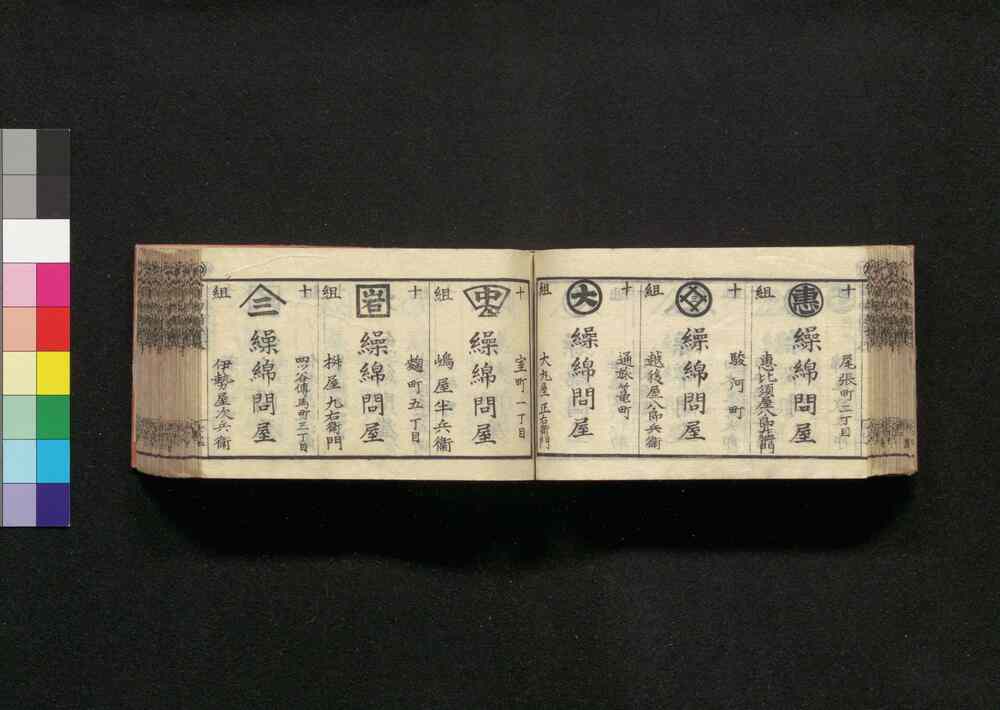 十 尾張町二丁目
惠 繰綿問屋
組 惠比須屋八郎左衛門
十 駿河町
繰綿問屋
組 越後屋八郎兵衞
十 通旅篭町
大 繰綿問屋
組 大丸屋 正右衞門
十 室町一丁目
中 繰綿問屋
組 嶋屋半兵衞
十 麹町五丁目
岩 繰綿問屋
組 桝屋九右衞門
十 四ツ谷傳馬町三丁目
三 繰綿問屋
組 伊勢屋次兵衞